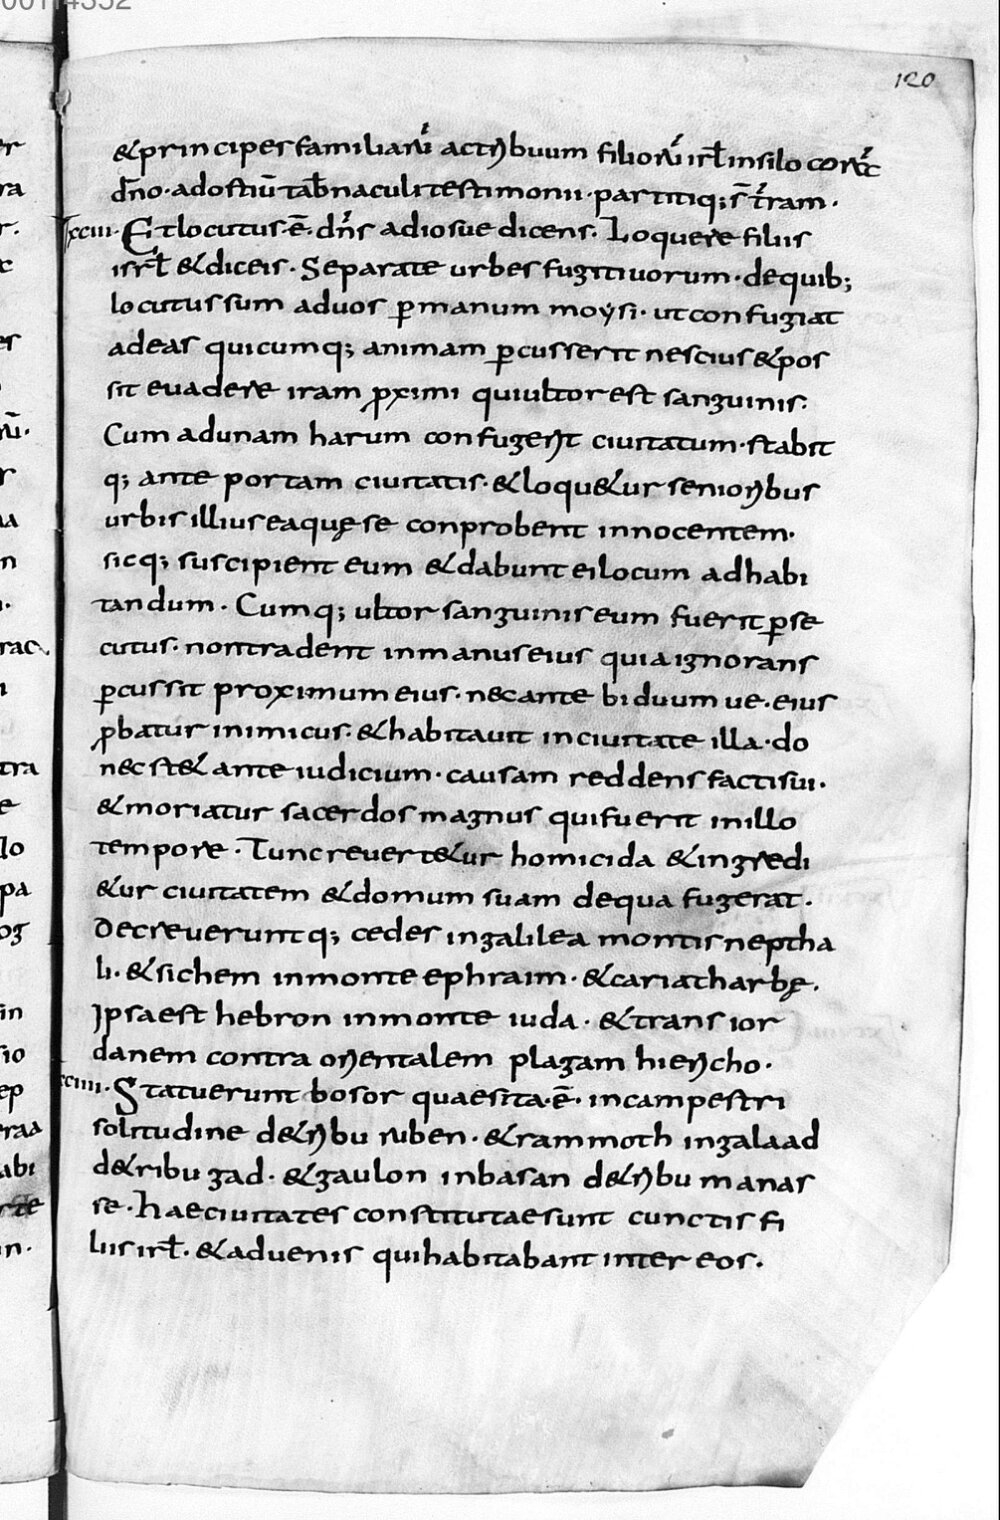 120
&principes familiarū actribuum filiorū isrł insilo corā
dño · adostiū tab̄naculi testimonii · partitiq; s̄ t̄ram ·
xxiii · Et locutus · ē · dñs adiosue dicens · Loquere filiis
isrł & dices · Separate urbes fugitiuorum · de quib;
locutus sum aduos p̱ manum moẏsi · ut confugiat
adeas quicumq; animam p̱cusserit nescius & pos
sit euadere iram p̱ximi qui ultor est sanguinis ·
Cum adunam harum confugerit ciuitatum · stabit
q; ante portam ciuitatis · & loqu&ur senioribus
urbis illius ea quę se conprobent innocentem ·
sicq; suscipient eum & dabunt ei locum adhabi
tandum · Cumq; ultor sanguinis eum fuerit p̱se
cutus · non tradent inmanus eius quia ignorans
p̱cussit proximum eius · nec ante biduum ue · eius
p̱batur inimicus · & habitauit inciuitate illa · do
nec st& ante iudicium · causam reddens facti sui ·
& moriatur sacerdos magnus qui fuerit inillo
tempore · Tunc reuert&ur homicida & ingredi
&ur ciuitatem & domum suam dequa fugerat ·
Decreueruntq; cedes ingalilea montis neptha
li · & sichem inmonte ephraim · & cariatharbę ·
Ipsa est hebron inmonte iuda · & trans ior
danem contra orientalem plagam hiericho ·
xxiiii · Statuerunt bosor quae sita · ē · incampestri
solitudine d&ribu ruben · & rammoth ingalaad
d&ribu gad · & gaulon inbasan d&ribu manas
se · Hae ciuitates constitutae sunt cunctis fi
liis isrł · & aduenis qui habitabant inter eos ·